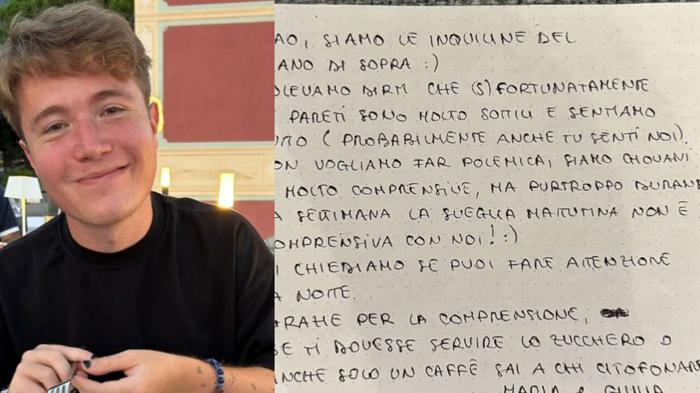 AO, SIAMO LE INQUILINE DEL
ANO DI SOPRA :)
OLEVAMO DIRTI CHE (S)FORTUNATAMENTE
PARETI SONO MOLTO SOTTILI E SENTIAMO
UTTO (PROBABILMENTE ANCHE TU SENTI NOI).
ON VOGLIAMO FAR POLEMICA, SIAMO GIOVANI
MOLTO COMPRENSIVE, MA PURTROPPO DURANT
A SETTIMANA LA SVEGLIA MATTUTINA NON È
OMPRENSIVA CON NOI! :)
I CHIEDIAMO SE PUOI FARE ATTENZIONE
A NOTTE.
GRAZIE PER LA COMPRENSIONE,
SE TI DOVESSE SERVIRE LO ZUCCHERO O
ANCHE SOLO UN CAFFÈ SAI A CHI CITOFONAR
MARIA e GIULIA